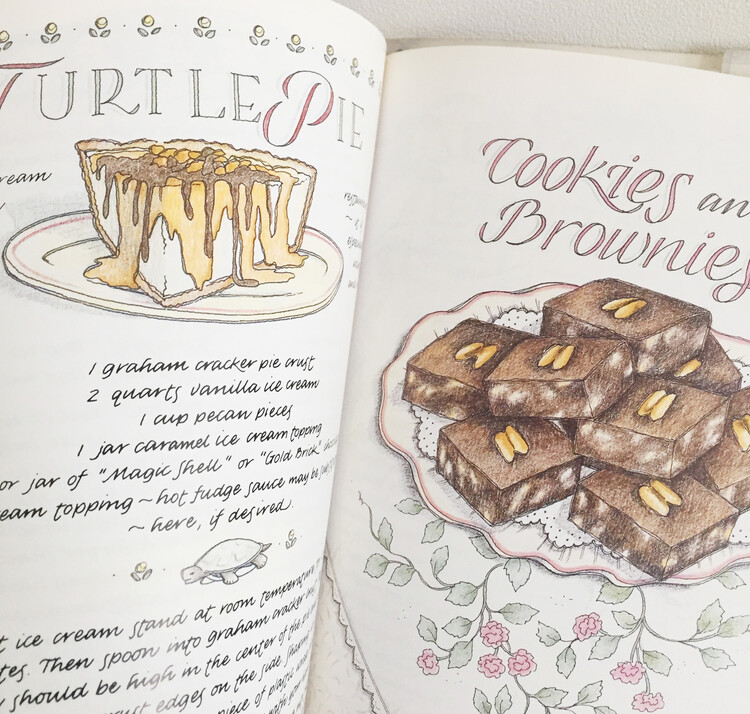 TURTLE PIE
1 graham cracker pie crust
2 quarts vanilla ice cream
1 cup pecan pieces
1 jar caramel ice cream topping
or jar of "Magic Shell" or "Gold Brick"
topping ~ hot fudge sauce may be
~ here, if desired.
ice cream stand at room temperature
Then spoon into graham cracker
should be high in the center of the
edges on the side
piece of
Cookies
Brownies